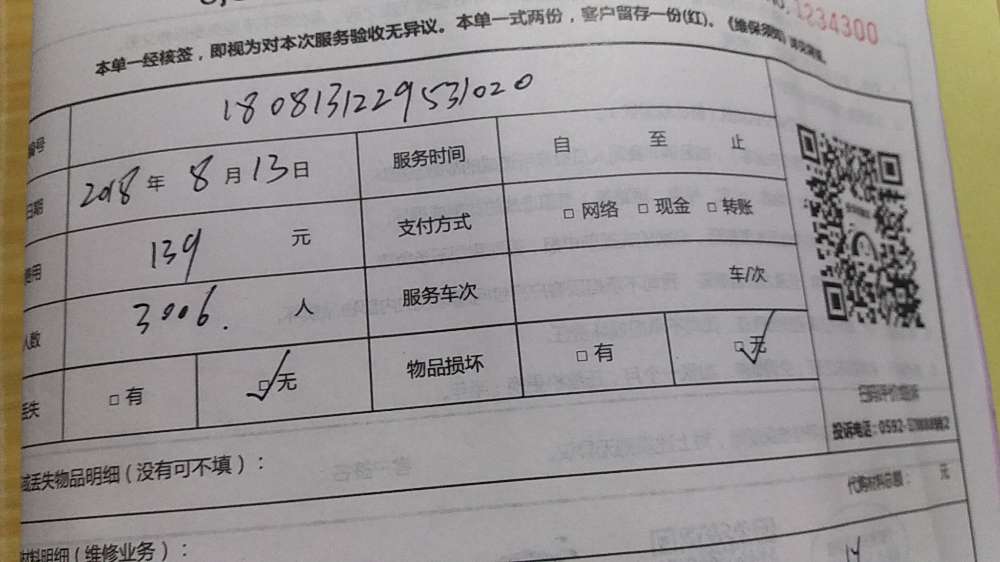 1234300
本单一经核签，即视为对本次服务验收无异议。本单一式两份，客户留存一份(红)。《维保须知》
编号 1808131229531020
日期 2018 年 8 月 13 日 服务时间 自 至 止
费用 139 元 支付方式 □ 网络 □ 现金 □ 转账
人数 3006. 人 服务车次 车/次
丢失 □ 有 □ 无 物品损坏 □ 有 □ 无
投诉电话：0592-
丢失物品明细（没有可不填）：
代购材料总额： 元
材料明细（维修业务）：